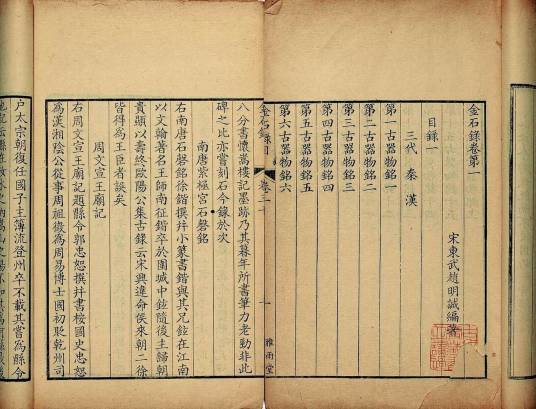 金石錄卷第一
宋東武趙明誠編著
目錄一
三代 秦 漢
第一古器物銘一
第二古器物銘二
第三古器物銘三
第四古器物銘四
第五古器物銘五
第六古器物銘六
一 雅雨堂
金石錄 卷三十
八分書懷嵩樓記墨跡乃其暮年所書筆力老勁非此
碑之比亦嘗刻石今錄於次
南唐紫極宮石磬銘
右南唐石磬銘徐鍇撰并小篆書鍇與其兄鉉在江南
以文翰著名王師南征鍇卒於圍城中鉉隨後主歸朝
貴顯以壽終歐陽公集古錄云宋興違命侯來朝二徐
皆得為王臣者誤矣
周文宣王廟記
右周文宣王廟記題縣令郭忠恕撰并書按國史忠恕
為漢湘陰公從事周祖徵為周易博士國初貶乾州司
戶太宗朝復任國子主簿流登州卒不載其嘗為縣令